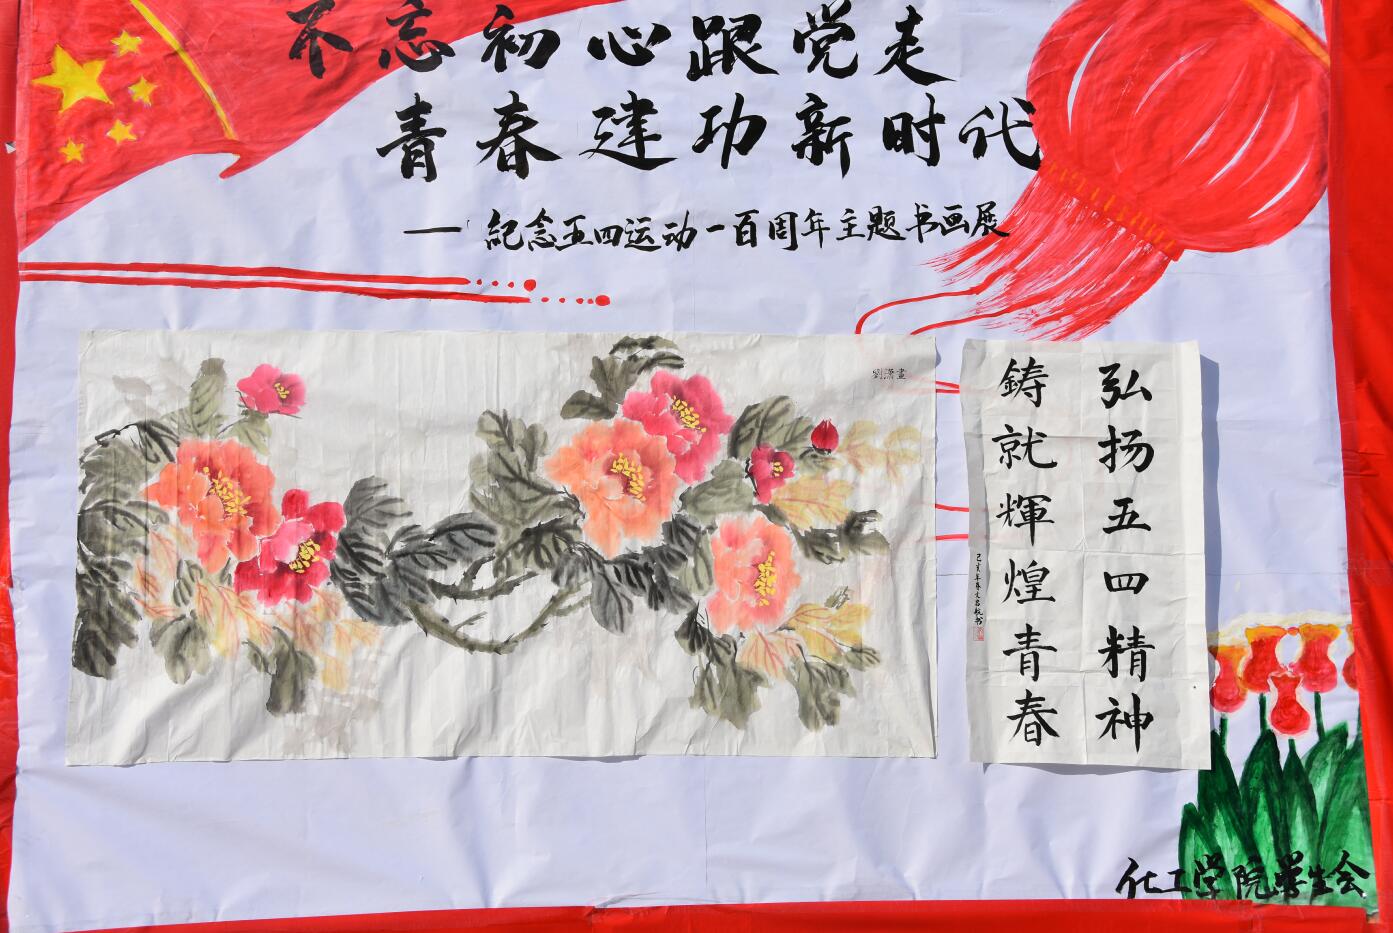 不忘初心跟党走
青春建功新时代
——紀念五四运动一百周年主题书画展
劉潇畫
弘扬五四精神
鋳就輝煌青春
己亥年春文昌航书
化工学院学生会